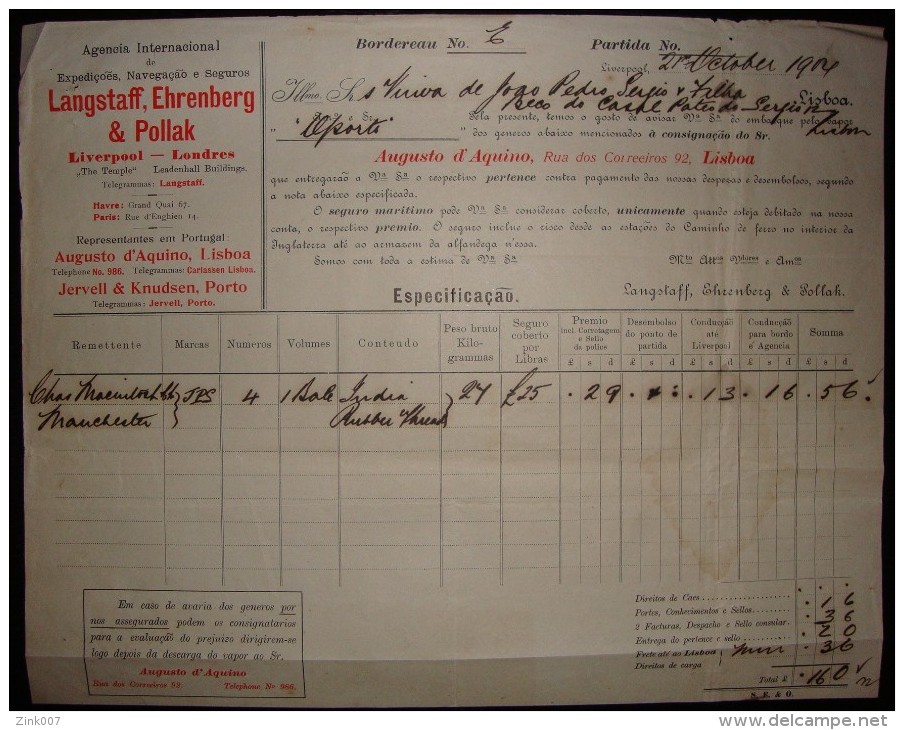 Agencia Internacional
de
Expedições, Navegação e Seguros
Langstaff, Ehrenberg
& Pollak
Liverpool — Londres
„The Temple“ Leadenhall Buildings.
Telegrammas: Langstaff.
Havre: Grand Quai 67.
Paris: Rue d'Enghien 14.
Representantes em Portugal
Augusto d'Aquino, Lisboa
Telephone No. 986. Telegrammas: Carlassen Lisboa.
Jervell & Knudsen, Porto
Telegrammas: Jervell, Porto.
Bordereau No. E
Partida No.
Liverpool, 21 October 1904
Illmo. Srs Viuva de Joao Pedro Sergio & Filha
Beco do Casal Pateo do Sergio 12 Lisboa.
Pela presente, temos o gosto de avisar Va Sa do embarque pelo vapor Lisbon
"Oporto" dos generos abaixo mencionados à consignação do Sr.
Augusto d'Aquino, Rua dos Correeiros 92, Lisboa
que entregarão a Va Sa o respectivo pertence contra pagamento das nossas despezas e desembolsos, segundo
a nota abaixo especificada.
O seguro maritimo pode Va Sa considerar coberto, unicamente quando esteja debitado na nossa
conta, o respectivo premio. O seguro inclue o risco desde as estações do Caminho de ferro no interior da
Inglaterra até ao armazem da alfandega n'essa.
Somos com toda a estima de Va Sa Mto Attos Vdores e Amos
Especificação.
Langstaff, Ehrenberg & Pollak.
Remettente Marcas Numeros Volumes Contendo Peso bruto Kilogrammas Seguro coberto por Libras Premio incl. Corretagem e Sello da police Desembolso do ponto de partida Conducção até Liverpool Conducção para bordo e Agencia Somma
£ s d £ s d £ s d £ s d £ s d
Chas Macintosh & Co JPS 4 1 Bale India 27 £25 . 2 9 . 1 3 . 1 6 . 5 6
Manchester Rubber Thread
Em caso de avaria dos generos por
nos assegurados podem os consignatarios
para a evaluação do prejuizo dirigirem-se
logo depois da descarga do vapor ao Sr.
Augusto d'Aquino
Rua dos Correeiros 92. Telephone No 986.
Direitos de Caes
Portes, Conhecimentos e Sellos . 1 6
2 Facturas, Despacho e Sello consular . 3 6
Entrega do pertence e sello . 2 0
Frete até ao Lisboa . 3 6
Direitos de carga
Total £ . 16 0
S. E. & O.
Zink007
delcampe.net